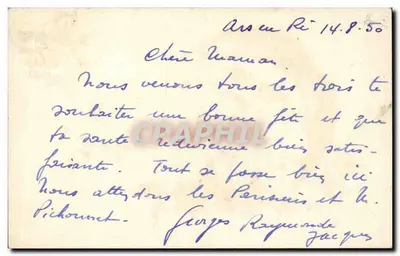 Ars en Ré 14.8.50
Chère Maman,
Nous venons tous les trois te
souhaiter une bonne fête et que
ta santé redevienne bien satis-
faisante. Tout se passe bien ici
Nous attendons les Parisiens et M.
Pichonnet.
Georges Raymonde
Jacques
CPAPHIL